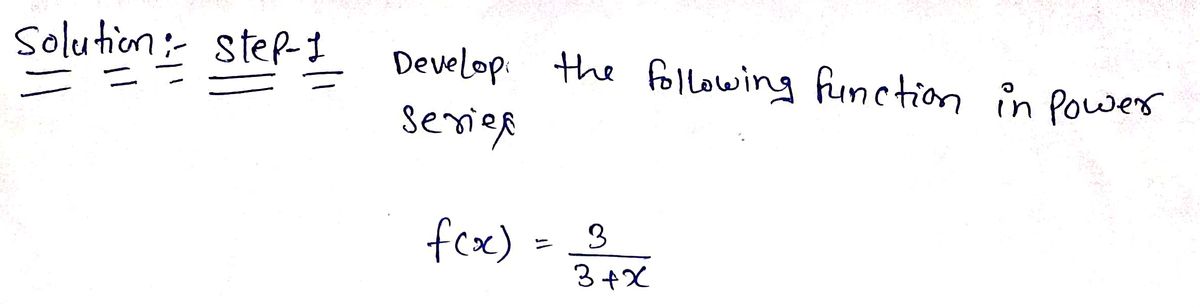 Solution:- Step-1 Develop the following function in Power
Series
f(x) = 3/(3+x)